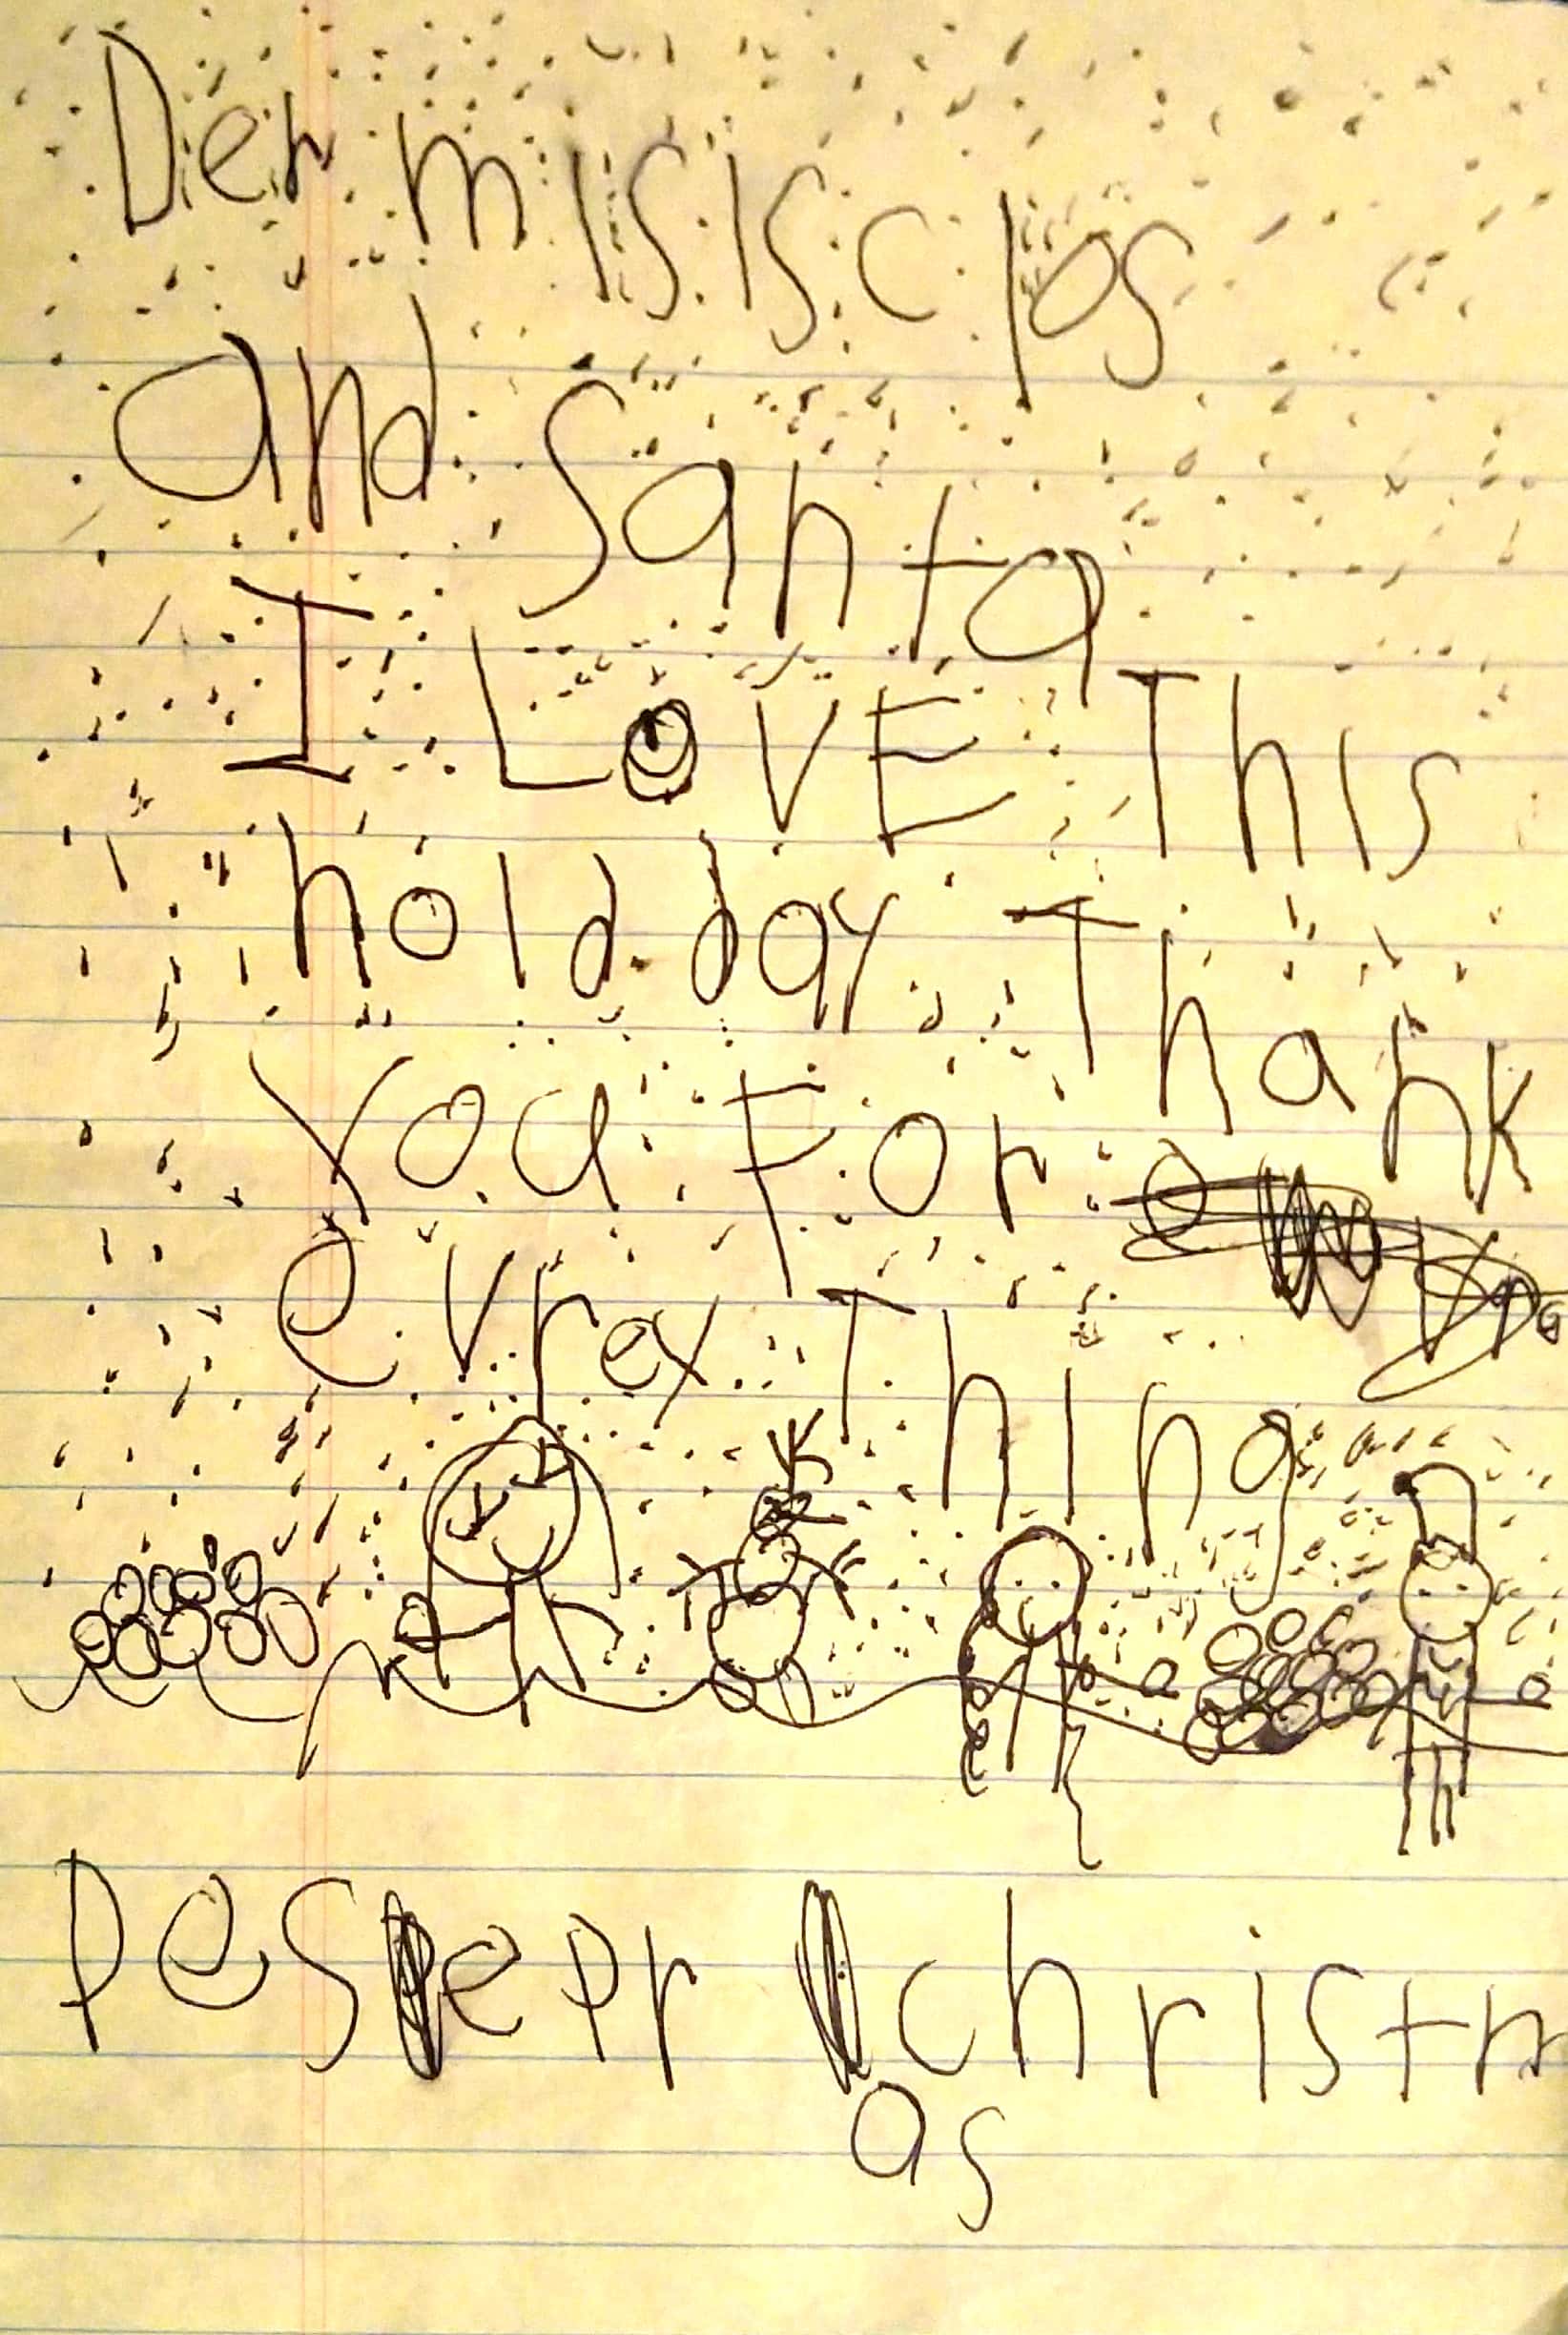 Der misisclos
and Santa
I LOVE This
holdday Thank
You For
evrey Thing
Pesepr christm
as